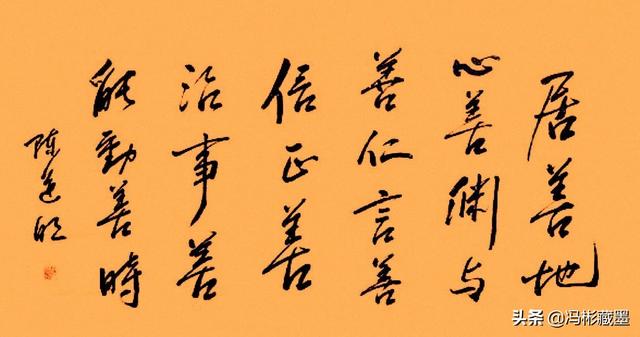 居善地
心善渊与
善仁言善
信正善
治事善
能動善時
陈道明
头条 @冯彬藏墨